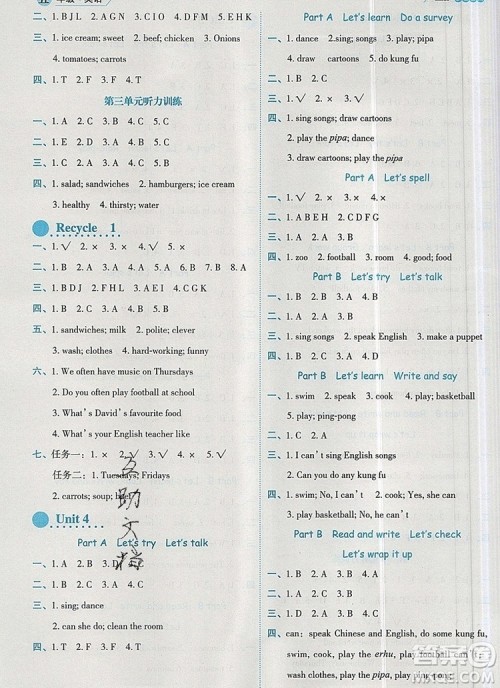 年级·英语
三、1. BJL 2. AIM 3. DFO 4. CGN 5. EHK
四、1. ice cream; sweet 2. chicken; beef 3. Onions
4. tomatoes; carrots
四、1. T 2. F 3. F 4. F 5. T
第三单元听力训练
一、1. A 2. B 3. A 4. C 5. C
二、1. C 2. C 3. A 4. B 5. C
三、1. D 2. C 3. E 4. A 5. B
四、1. salad; sandwiches 2. hamburgers; ice cream
3. healthy 4. thirsty; water
Recycle 1
一、1. √ 2. × 3. × 4. √ 5. ×
二、1. B 2. A 3. B 4. C 5. B
三、1. BDJ 2. FHL 3. AEI 4. CGK
四、1. B 2. C 3. C 4. A 5. B
五、1. sandwiches; milk 2. polite; clever
3. wash; clothes 4. hard-working; funny
六、1. We often have music on Thursdays
2. Do you often play football at school
3. What's David's favourite food
4. What's your English teacher like
七、任务一：1. × 2. √ 3. √ 4. × 5. √
任务二：1. Tuesdays; Fridays
2. carrots; soup; beef
Unit 4
Part A Let's try Let's talk
一、1. B 2. A 3. D 4. C
二、1. B 2. A 3. A 4. C
三、1. sing; dance
2. can she do; clean the room
四、1. T 2. F 3. F 4. T
Part A Let's learn Do a survey
一、1. dance 2. sing; songs 3. play; pipa
4. draw cartoons 5. do kung fu
三、1. √ 2. √ 3. × 4. ×
四、1. sing songs; draw cartoons
2. play the pipa; dance
3. draw cartoons; play the pipa
Part A Let's spell
一、1. ABEH 2. CDFG
二、1. A 2. A 3. B
四、1. zoo 2. football 3. room 4. good; food
Part B Let's try Let's talk
一、1. B 2. A 3. B
二、1. sing songs 2. speak English 3. make a puppet
四、1. B 2. C 3. A
Part B Let's learn Write and say
一、1. swim 2. speak 3. cook 4. play; basketball
5. play; ping-pong
二、1. B 2. C 3. B 4. A
三、1. I can't sing English songs
2. Can you do any kung fu
四、1. swim; No, I can't 2. cook; Yes, she can
3. play basketball; No, he can't
Part B Read and write Let's check
Let's wrap it up
一、1. B 2. A 3. B 4. A
二、1. B 2. A 3. B 4. B
四、can: speak Chinese and English, do some kung fu,
swim, cook, play the erhu, play football can't:
wash clothes, play the pipa, play ping-pong
四、1. T 2. T 3. F 4. F
互助文档